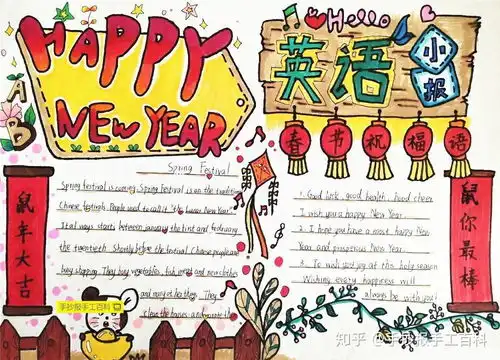 HAPPY
NEW YEAR
Hello
英语
小报
A
B
春节祝福语
鼠年大吉
鼠你最棒
Spring Festival
Spring festival is coming. Spring festival is on the
Chinese People used to call it "the lunar New Year"
It always starts between january the and february
the twentieth Shortly before the festival Chinese people are
busy shopping. They buy vegetables, fish, meat and new clothes
and many other things. They
clean the houses and
1. Good luck, good health, good cheer
I wish you a happy New Year
2. I hope you have a most happy New
Year and prosperous New Year.
3. To wish you joy at this holy season
Wishing every happiness will
always be with you!
手抄报手工百科
知乎 @手抄报手工百科